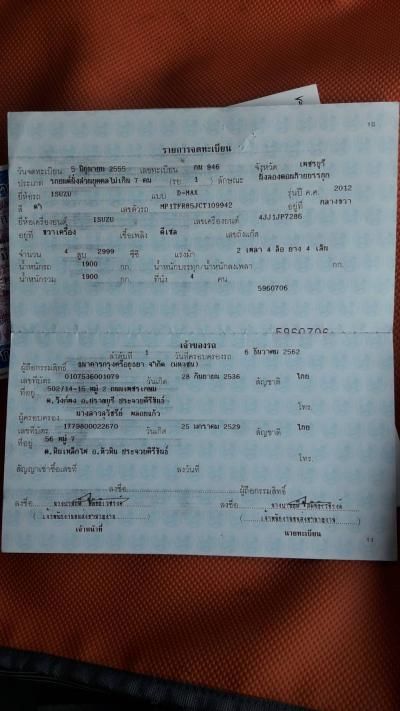 10
รายการจดทะเบียน
วันจดทะเบียน 5 มิถุนายน 2555 เลขทะเบียน กน 946 จังหวัด เพชรบุรี
ประเภท รถยนต์นั่งส่วนบุคคลไม่เกิน 7 คน (รย 1 ) ลักษณะ นั่งสองตอนท้ายบรรทุก
ยี่ห้อรถ ISUZU แบบ D-MAX รุ่นปี ค.ศ. 2012
สี ดำ เลขตัวรถ MP1TFR85JCT109942 อยู่ที่ กลางขวา
ยี่ห้อเครื่องยนต์ ISUZU เลขเครื่องยนต์ 4JJ1JP7286
อยู่ที่ ขวาเครื่อง เชื้อเพลิง ดีเซล เลขถังแก๊ส
จำนวน 4 สูบ 2999 ซีซี แรงม้า 2 เพลา 4 ล้อ ยาง 4 เส้น
น้ำหนักรถ 1900 กก. น้ำหนักบรรทุก/น้ำหนักลงเพลา กก.
น้ำหนักรวม 1900 กก. ที่นั่ง 4 คน
5960706
5960706
เจ้าของรถ
ลำดับที่ 1 วันที่ครอบครองรถ 6 ธันวาคม 2562
ผู้ถือกรรมสิทธิ์ ธนาคารกรุงศรีอยุธยา จำกัด (มหาชน)
เลขที่บัตร 0107536001079 วันเกิด 28 กันยายน 2536 สัญชาติ ไทย
ที่อยู่ 502/14-15 หมู่ 2 ถนนเพชรเกษม
ต.วังก์พง อ.ปราณบุรี ประจวบคีรีขันธ์ โทร.
ผู้ครอบครอง นางสาวสุวิชรีย์ พลอยแก้ว
เลขที่บัตร 1779800022670 วันเกิด 25 มกราคม 2529 สัญชาติ ไทย
ที่อยู่ 56 หมู่ 7
ต.หินเหล็กไฟ อ.หัวหิน ประจวบคีรีขันธ์ โทร.
สัญญาเช่าซื้อเลขที่ ลงวันที่
ลงชื่อ ผู้ถือกรรมสิทธิ์
ลงชื่อ ลงชื่อ
เจ้าหน้าที่ นายทะเบียน
11